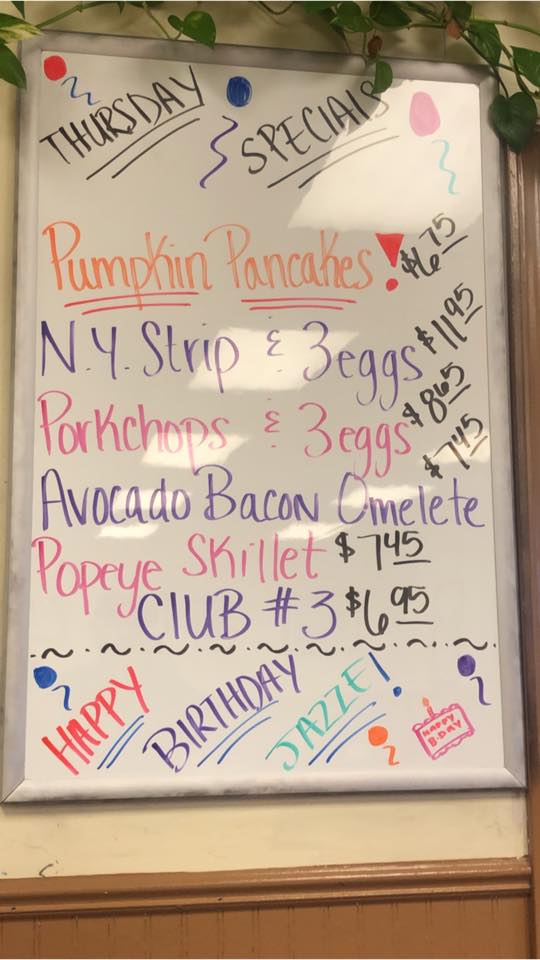 THURSDAY SPECIALS
Pumpkin Pancakes! $6.75
N.Y. Strip & 3 eggs $11.95
Porkchops & 3 eggs $8.65
$7.45
Avocado Bacon Omelete
Popeye Skillet $7.45
CLUB #3 $6.95
HAPPY BIRTHDAY JAZZE!
HAPPY
B-DAY